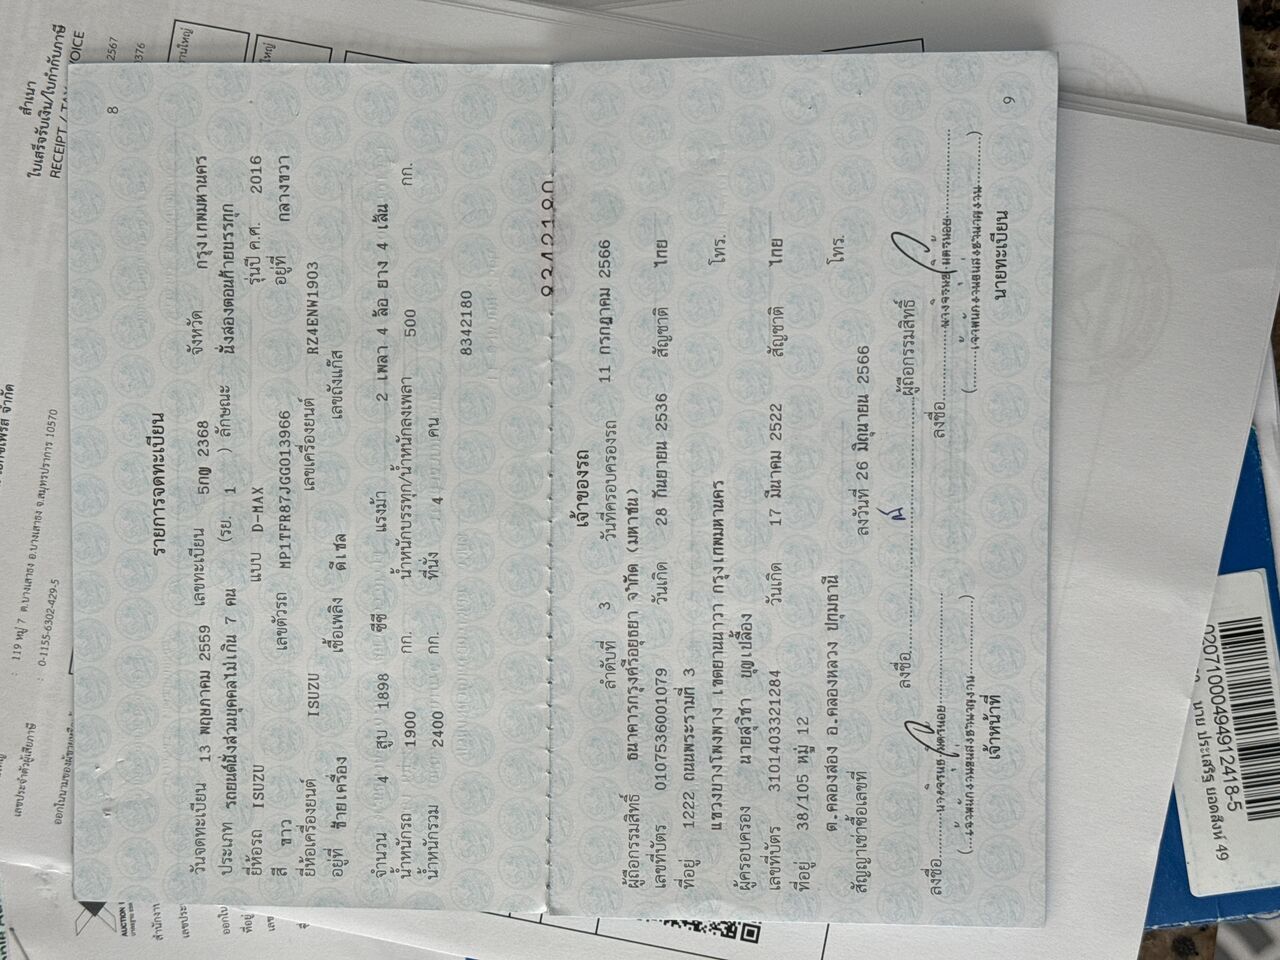 8
รายการจดทะเบียน
วันจดทะเบียน 13 พฤษภาคม 2559 เลขทะเบียน 5กญ 2368 จังหวัด กรุงเทพมหานคร
ประเภท รถยนต์นั่งส่วนบุคคลไม่เกิน 7 คน (รย. 1 ) ลักษณะ นั่งสองตอนท้ายบรรทุก
ยี่ห้อรถ ISUZU แบบ D-MAX รุ่นปี ค.ศ. 2016
สี ขาว เลขตัวรถ MP1TFR87JGG013966 อยู่ที่ กลางขวา
ยี่ห้อเครื่องยนต์ ISUZU เลขเครื่องยนต์ RZ4ENW1903
อยู่ที่ ซ้ายเครื่อง เชื้อเพลิง ดีเซล เลขถังแก๊ส
จำนวน 4 สูบ 1898 ซีซี แรงม้า 2 เพลา 4 ล้อ ยาง 4 เส้น
น้ำหนักรถ 1900 กก. น้ำหนักบรรทุก/น้ำหนักลงเพลา 500 กก.
น้ำหนักรวม 2400 กก. ที่นั่ง 4 คน
8342180
8342180
เจ้าของรถ
ลำดับที่ 3 วันที่ครอบครองรถ 11 กรกฎาคม 2566
ผู้ถือกรรมสิทธิ์ ธนาคารกรุงศรีอยุธยา จำกัด (มหาชน)
เลขที่บัตร 0107536001079 วันเกิด 28 กันยายน 2536 สัญชาติ ไทย
ที่อยู่ 1222 ถนนพระรามที่ 3
แขวงบางโพงพาง เขตยานนาวา กรุงเทพมหานคร โทร.
ผู้ครอบครอง นายสุวิชา บุญเปลื้อง
เลขที่บัตร 3101403321284 วันเกิด 17 มีนาคม 2522 สัญชาติ ไทย
ที่อยู่ 38/105 หมู่ 12
ต.คลองสอง อ.คลองหลวง ปทุมธานี โทร.
สัญญาเช่าซื้อเลขที่ ลงวันที่ 26 มิถุนายน 2566
ลงชื่อ ผู้ถือกรรมสิทธิ์
ลงชื่อ ลงชื่อ
(เจ้าพนักงานขนส่งชำนาญงาน) (เจ้าพนักงานขนส่งชำนาญงาน)
เจ้าหน้าที่ นายทะเบียน
9
สำเนา
ใบเสร็จรับเงิน/ใบกำกับภาษี
119 หมู่ 7 ต.บางเสาธง อ.บางเสาธง จ.สมุทรปราการ 10570
0-1155-6302-429-5
เลขประจำตัวผู้เสียภาษี
020710004949 12418-5
นาย ประเสริฐ ยอดสิงห์ 49